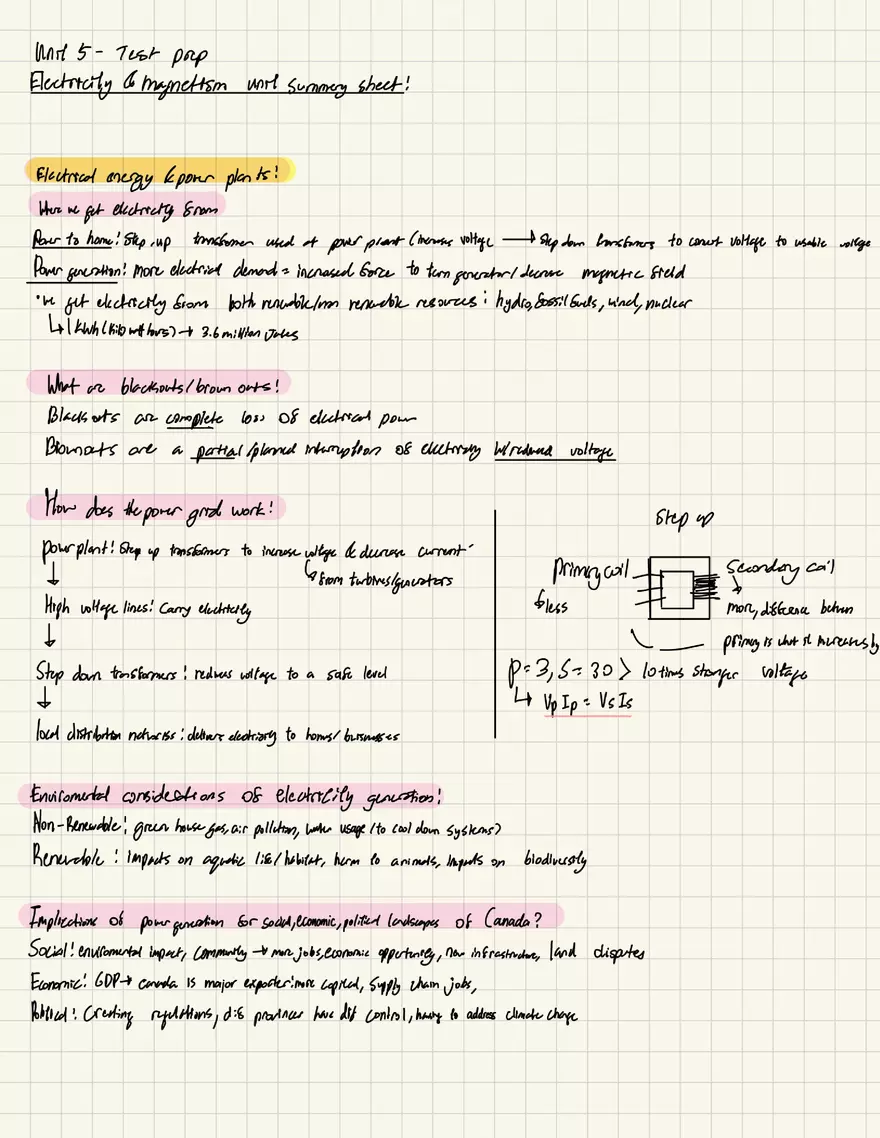 Unit 5 - Test prep
Electricity & magnetism unit summary sheet!
Electrical energy & power plants!
How we get electricity from
Power to home! Step up transformer used at power plant (increases voltage → Step down transformers to convert voltage to usable voltage
Power generation! More electrical demand = increased force to turn generator/decrease magnetic field
• we get electricity from both renewable/non renewable resources: hydro, fossil fuels, wind, nuclear
↳ 1 kWh (kilo watt hours) → 3.6 million Joules
What are blackouts/brown outs!
Blackouts are complete loss of electrical power
Brownouts are a partial/planned interruption of electricity w/reduced voltage
How does the power grid work!
power plant! Step up transformers to increase voltage & decrease current
↳ from turbines/generators
↓
High voltage lines! Carry electricity
↓
Step down transformers! reduces voltage to a safe level
↓
local distribution networks: delivers electricity to homes/businesses
Step up
Primary coil
↳ less
Secondary coil
more, difference between
primary is what it increases by
P = 3, S = 30 > 10 times stronger voltage
↳ Vp Ip = Vs Is
Enviromental considerations of electricity generation!
Non-Renewable! green house gas, air pollution, water usage (to cool down systems)
Renewable! impacts on aquatic life/habitat, harm to animals, impacts on biodiversity
Implications of power generation for social, economic, political landscapes of Canada?
Social! enviromental impact, community → more jobs, economic opportunity, new infrastructure, land disputes
Economic! GDP → canada is major exporter! more capital, supply chain jobs,
Political! Creating regulations, dif provinces have dif control, having to address climate change